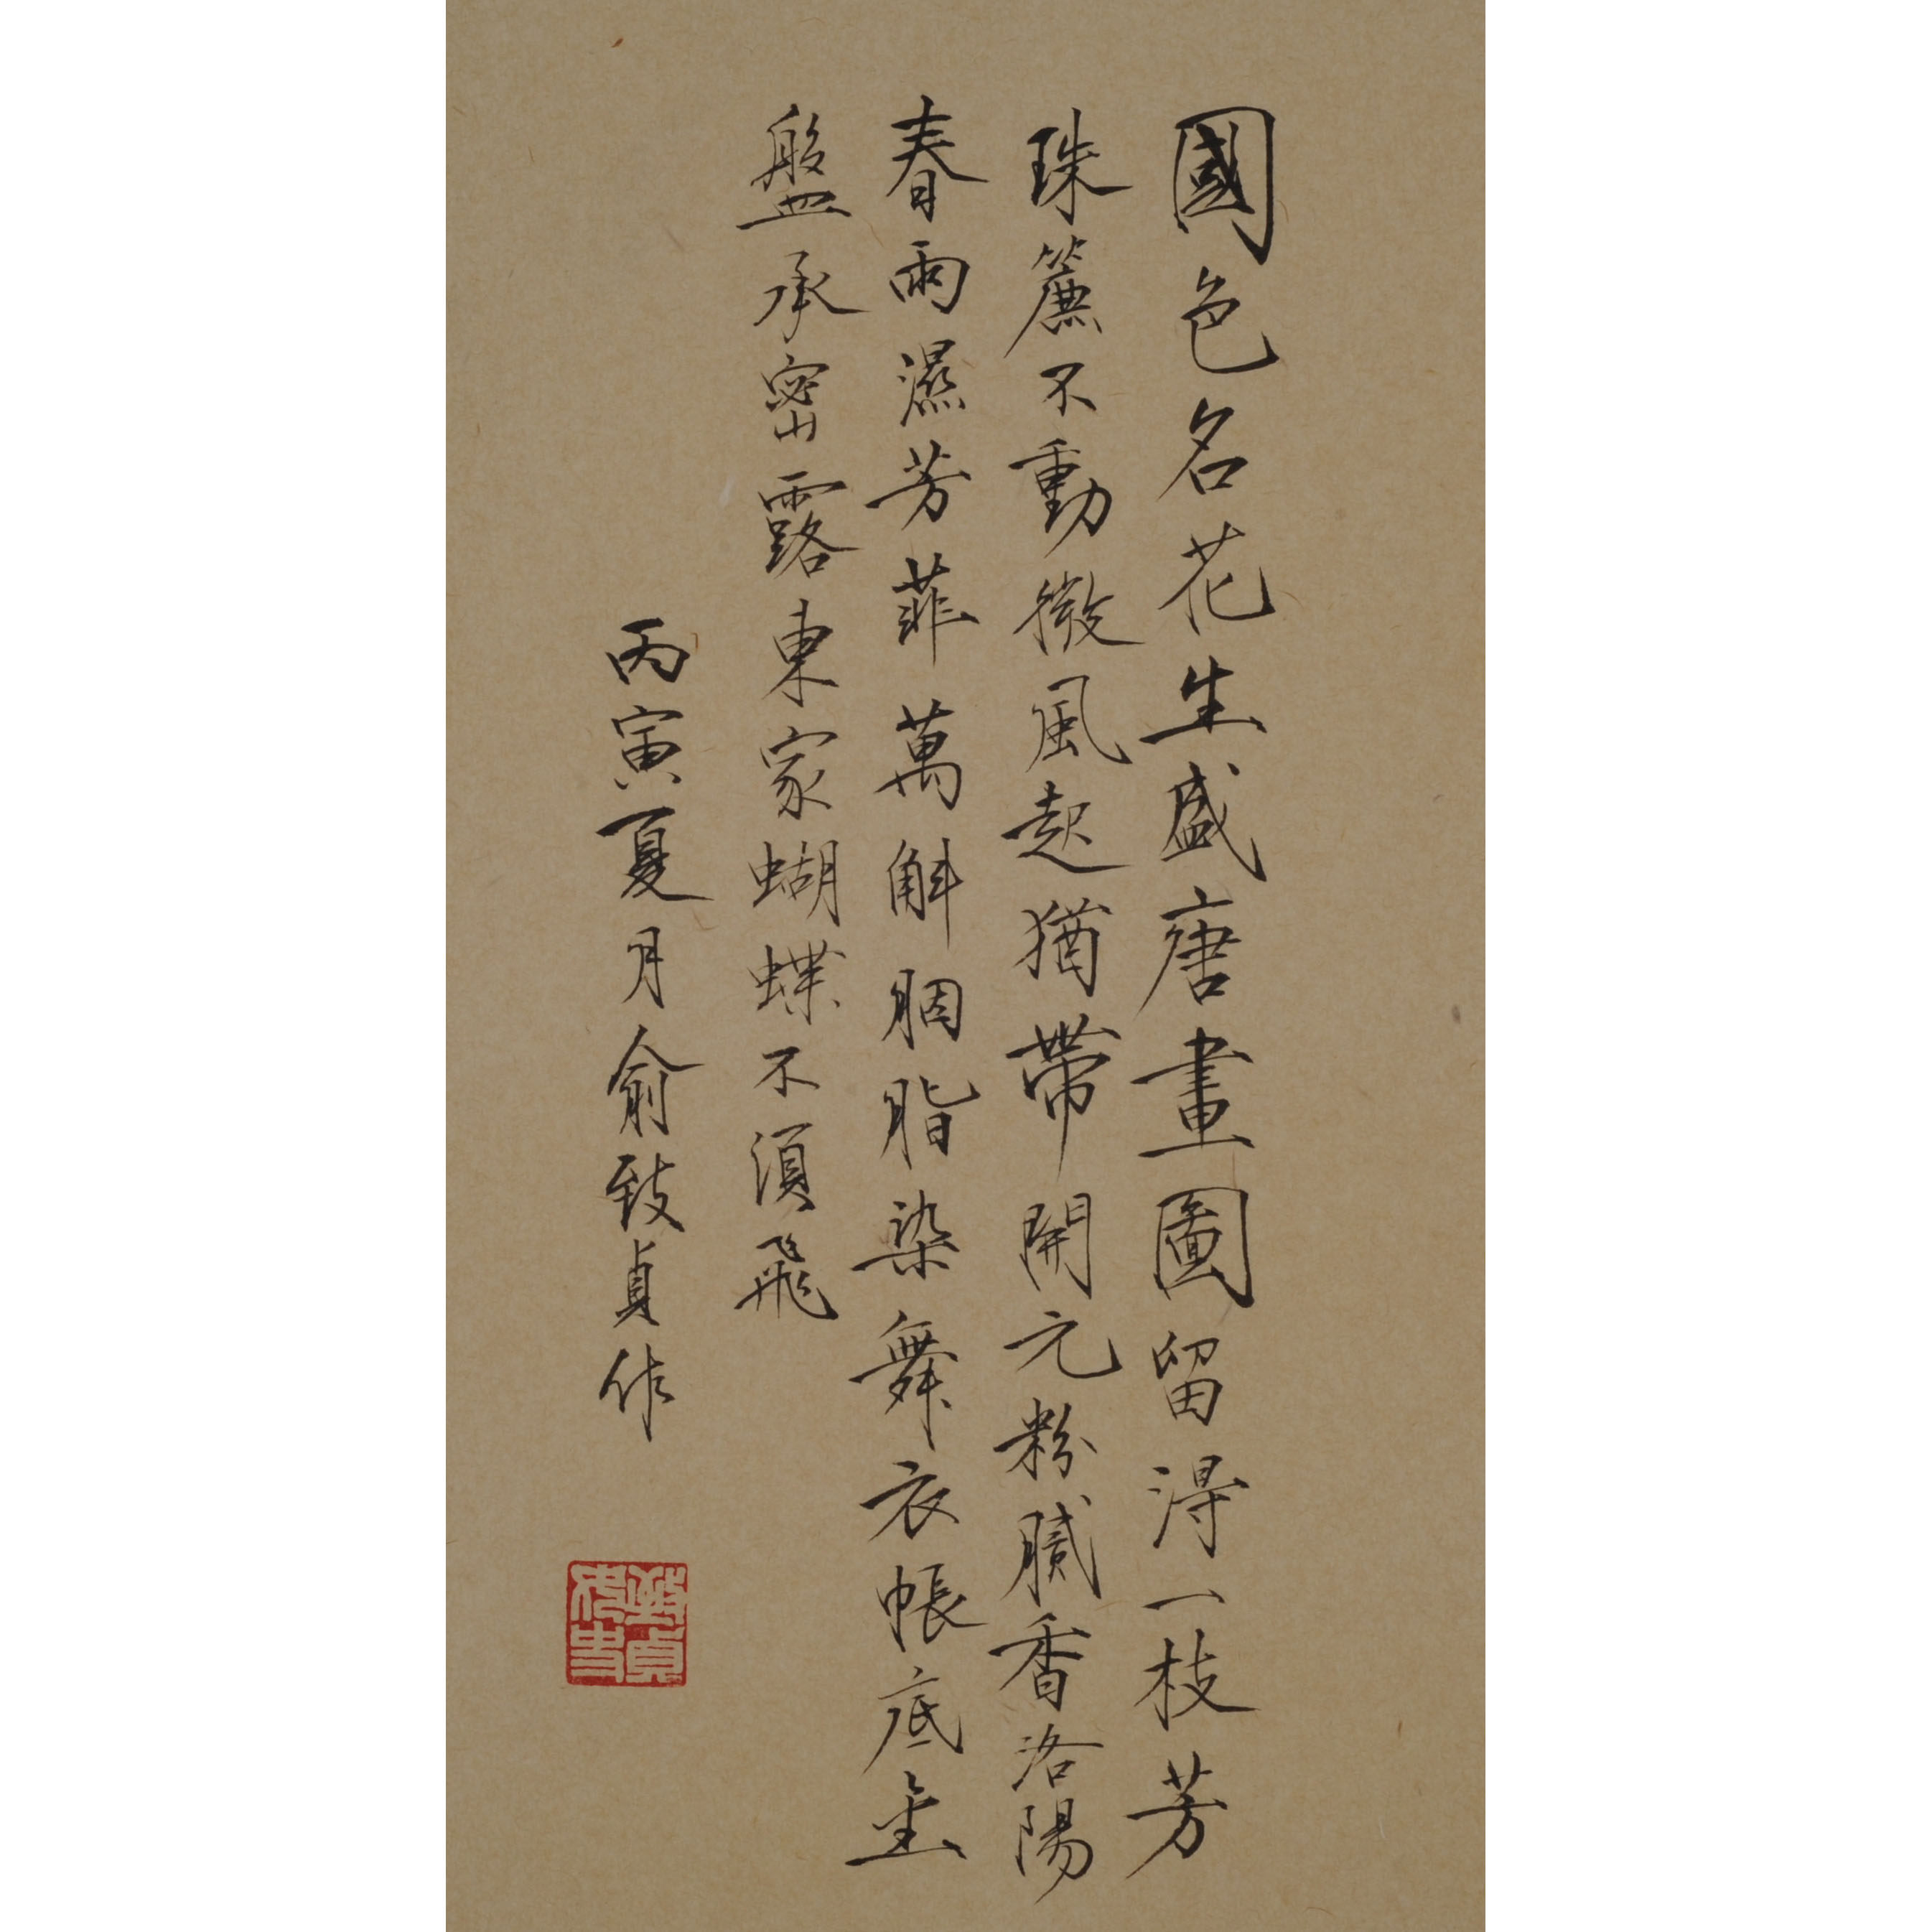 國色名花生盛唐畫圖留得一枝芳
珠簾不動微風起猶帶開元粉膩香洛陽
春雨濕芳菲萬斛胭脂染舞衣帳底金
盤承密露東家蝴蝶不須飛
丙寅夏月俞致貞作